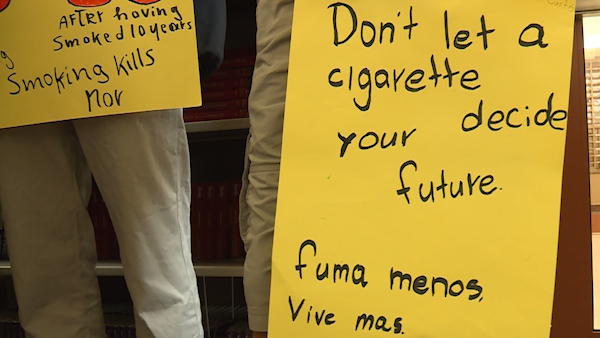 AFTER having
Smoked 10 years
Smoking kills
nor
Don't let a
cigarette
your decide
future.
fuma menos,
Vive mas.